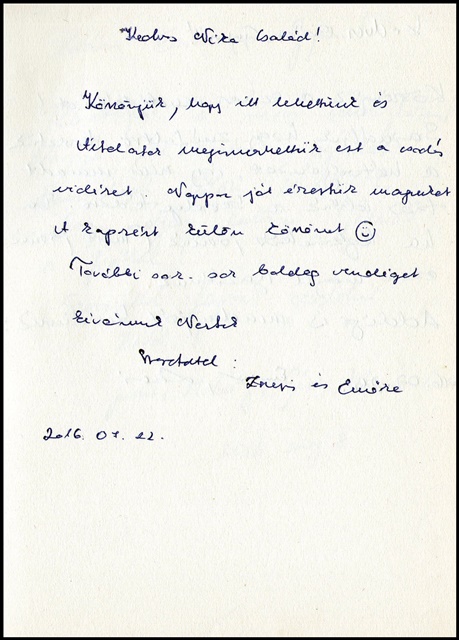 Kedves Nika Család!
Köszönjük, hogy itt lehettünk és
általatok megismerhettük ezt a csodás
vidéket. Nagyon jól éreztük magunkat
A kaprért külön köszönet ☺
További sok-sok boldog vendéget
kívánunk Nektek
Szeretettel:
és Emőke
2016. 07. 22.